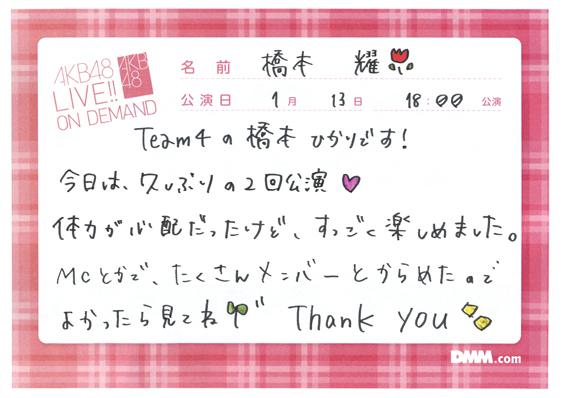 AKB48
LIVE!!
ON DEMAND
AKB
48
名前 橋本 耀
公演日 1月 13日 18:00 公演
Team4の橋本ひかりです!
今日は、久しぶりの2回公演
体力が心配だったけど、すっごく楽しめました。
MCとかで、たくさんメンバーとからめたので
よかったら見てね Thank you
DMM.com